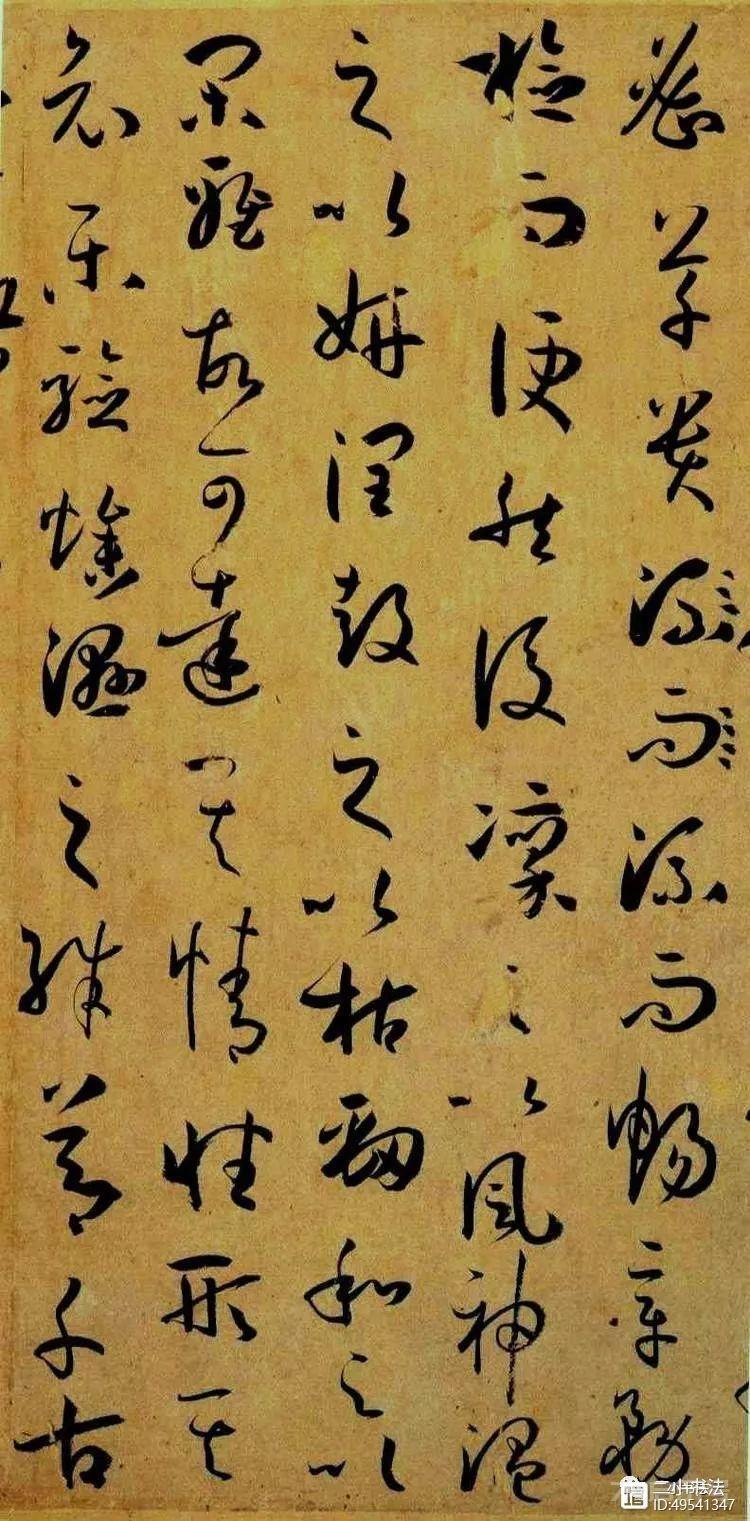 密草貴流而流而暢章務
檢而便然後凜之以風神溫
之以妍潤鼓之以枯勁和之以
閑雅故可達其情性形其
哀樂驗燥濕之殊節千古
二小书法
ID:49541347